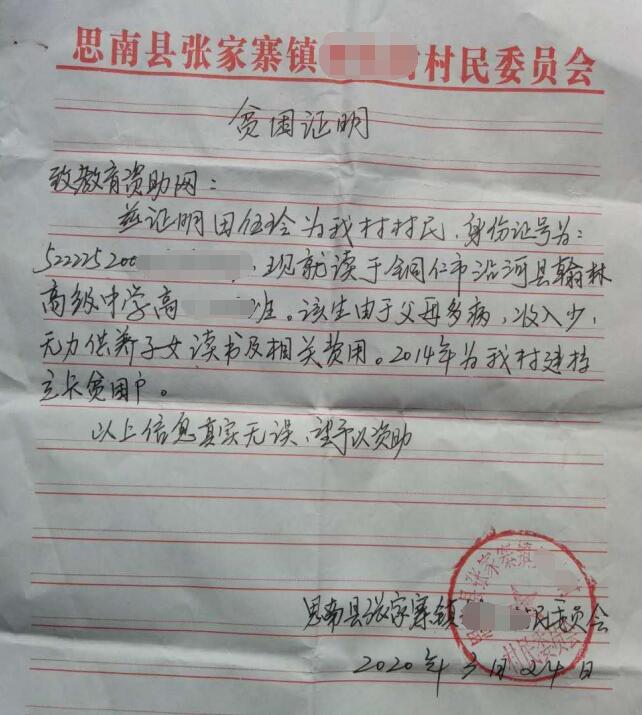 思南县张家寨镇 村民委员会
贫困证明
致教育资助网：
兹证明田伍玲为我村村民，身份证号为：
522225200 ，现就读于铜仁市沿河县翰林
高级中学高 班。该生由于父母多病，收入少，
无力供养子女读书及相关费用。2014年为我村建档
立卡贫困户。
以上信息真实无误，望予以资助
思南县张家寨镇 民委员会
2020年3月24日
思南县张家寨镇 村民委员会